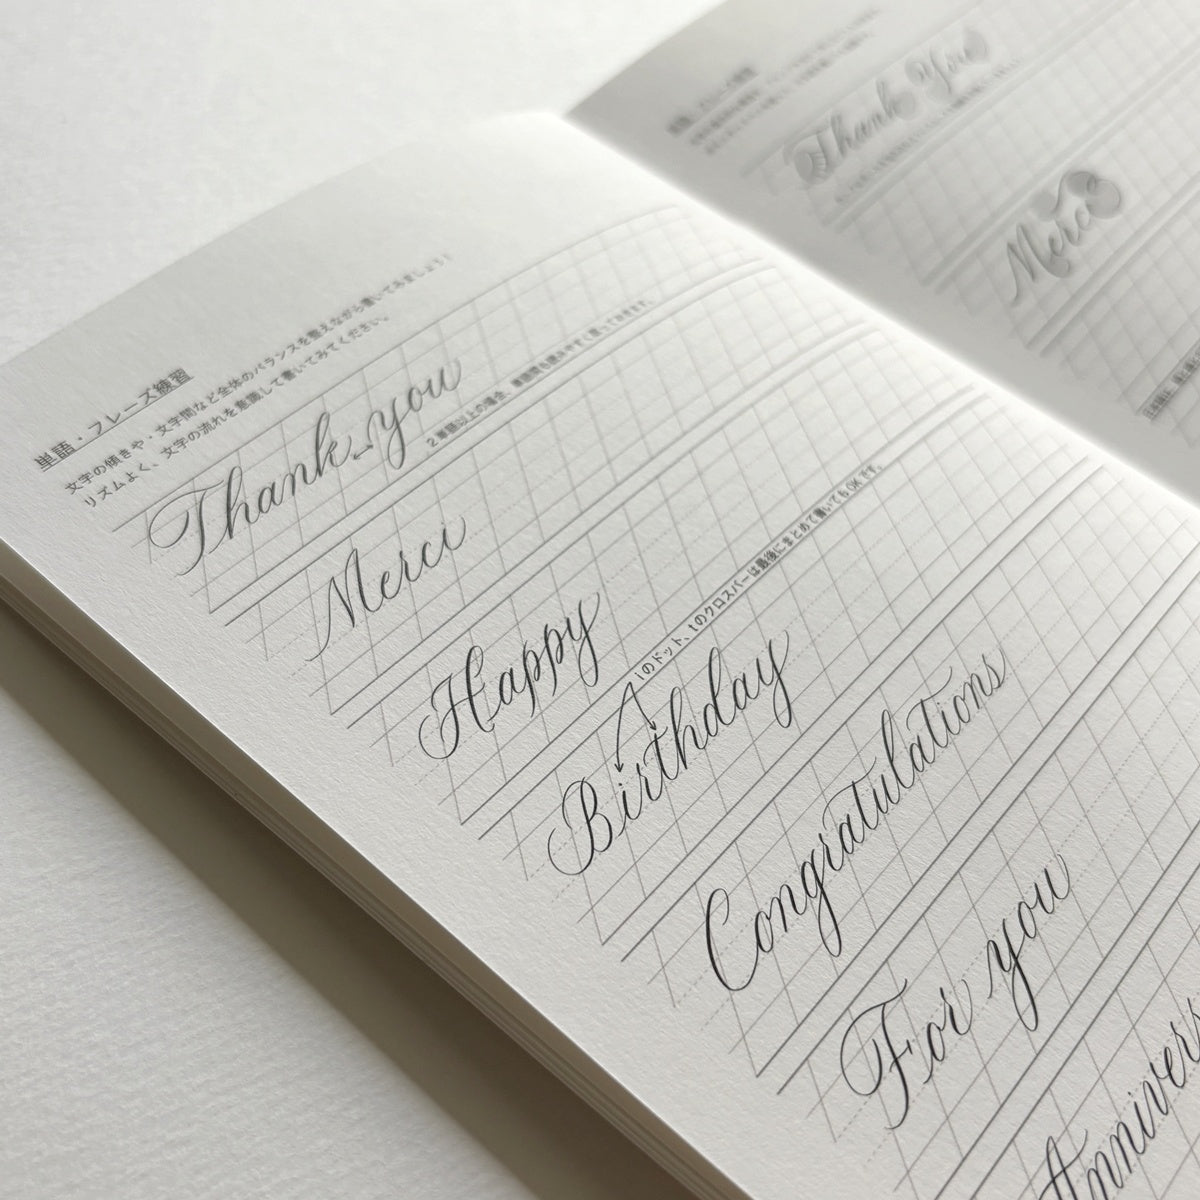 単語・フレーズ練習
文字の傾きや・文字間など全体のバランスを整えながら書いてみましょう！
リズムよく、文字の流れを意識して書いてみてください。
Thank you
2単語以上の場合、単語間も読みやすく
Merci
Happy
iのドット、tのクロスバーは最後にまとめて書いてもOKです。
Birthday
Congratulations
For you
Annivers
Thank You
Merci